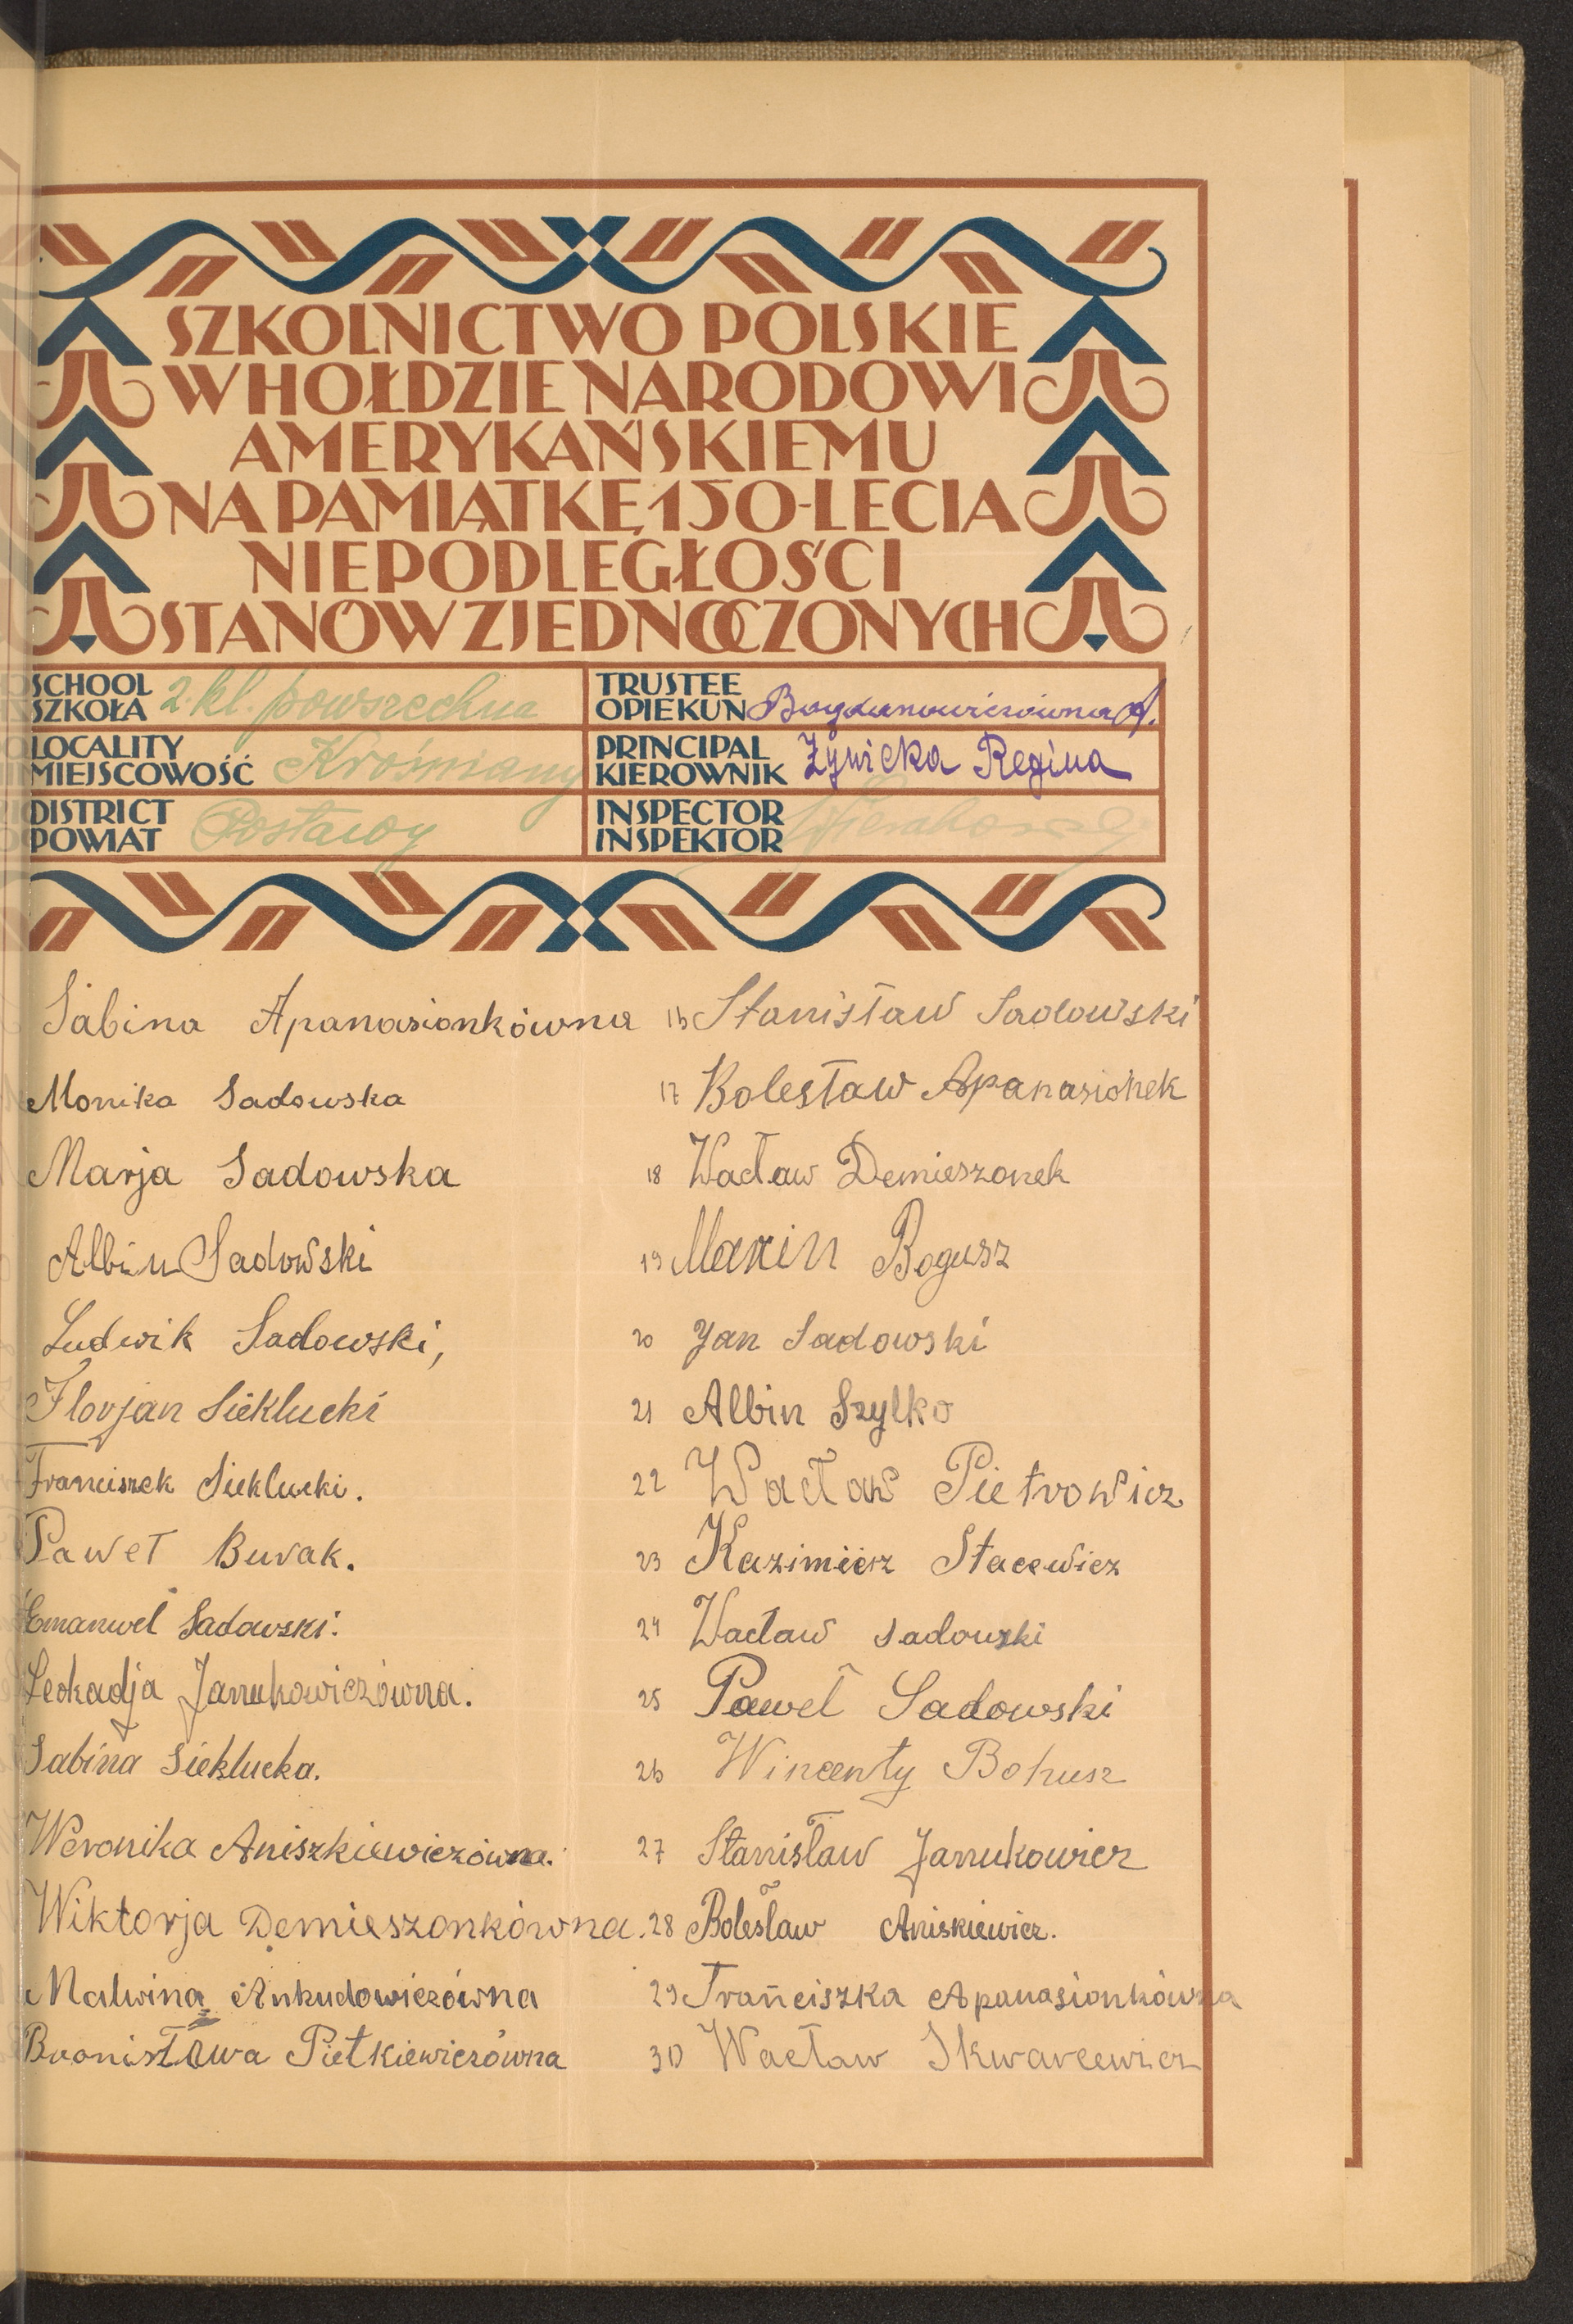 SZKOLNICTWO POLSKIE
W HOŁDZIE NARODOWI
AMERYKAŃSKIEMU
NA PAMIĄTKĘ 150-LECIA
NIEPODLEGŁOŚCI
STANÓW ZJEDNOCZONYCH
SCHOOL
SZKOŁA 2. kl. powszechna
TRUSTEE
OPIEKUN Bogdanowiczówna A.
LOCALITY
MIEJSCOWOŚĆ Krośniany
PRINCIPAL
KIEROWNIK Żywicka Regina
DISTRICT
POWIAT Postawy
INSPECTOR
INSPEKTOR
Sabina Apanasionkówna
Monika Sadowska
Marja Sadowska
Albin Sadowski
Ludwik Sadowski,
Florjan Sieklucki
Franciszek Sieklucki.
Paweł Burak.
Emanuel Sadowski.
Leokadja Janukowiczówna.
Sabina Sieklucka.
Weronika Aniszkiewiczówna.
Wiktorja Demieszonkówna.
Malwina Ankudowiczówna
Bronisława Pietkiewiczówna
16 Stanisław Sadowski
17 Bolesław Apanasionek
18 Wacław Demieszonek
19 Marin Bogusz
20 Jan Sadowski
21 Albin Szylko
22 Wacław Pietrowicz
23 Kazimierz Stacewicz
24 Wacław Sadowski
25 Paweł Sadowski
26 Wincenty Bohusz
27 Stanisław Janukowicz
28 Bolesław Aniskiewicz.
29 Franciszka Apanasionkówna
30 Wacław Skwarcewicz